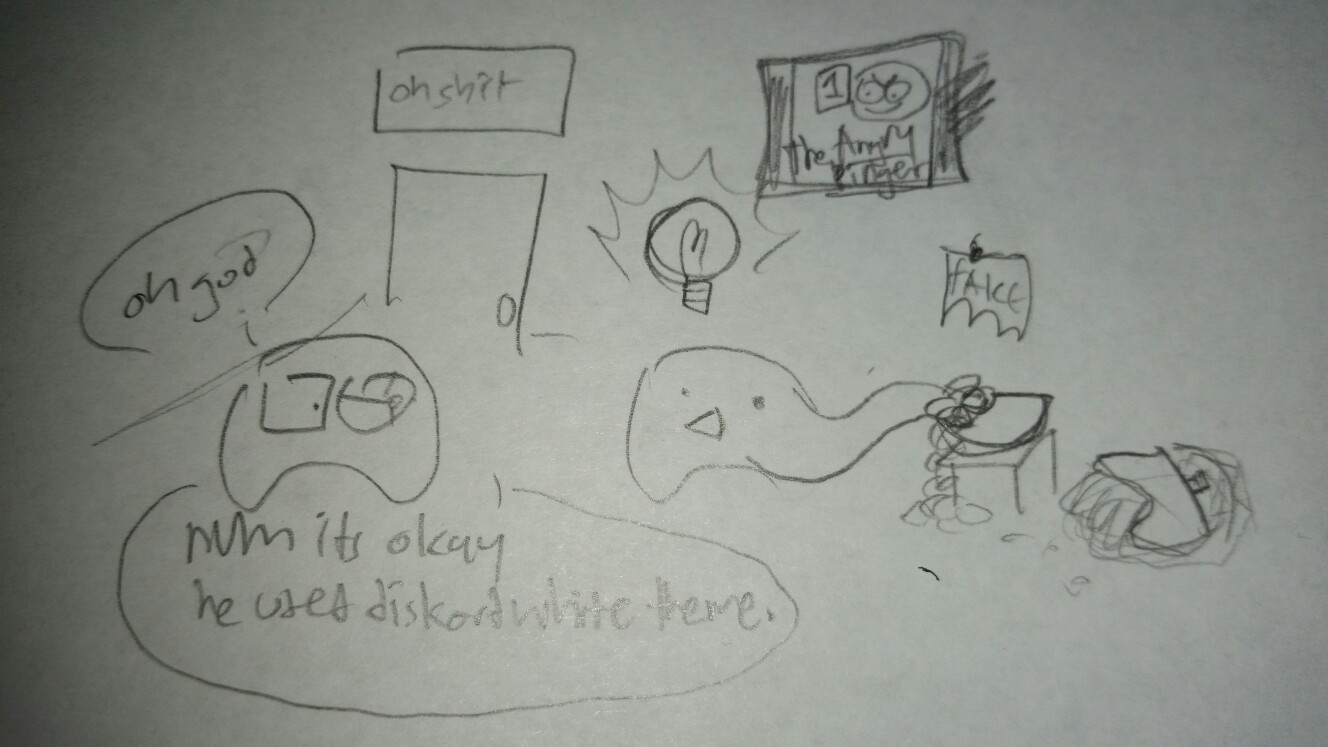 oh shit
1
the Angry
Pinger
oh god
FAKE
nvm its okay
he used diskord white theme.